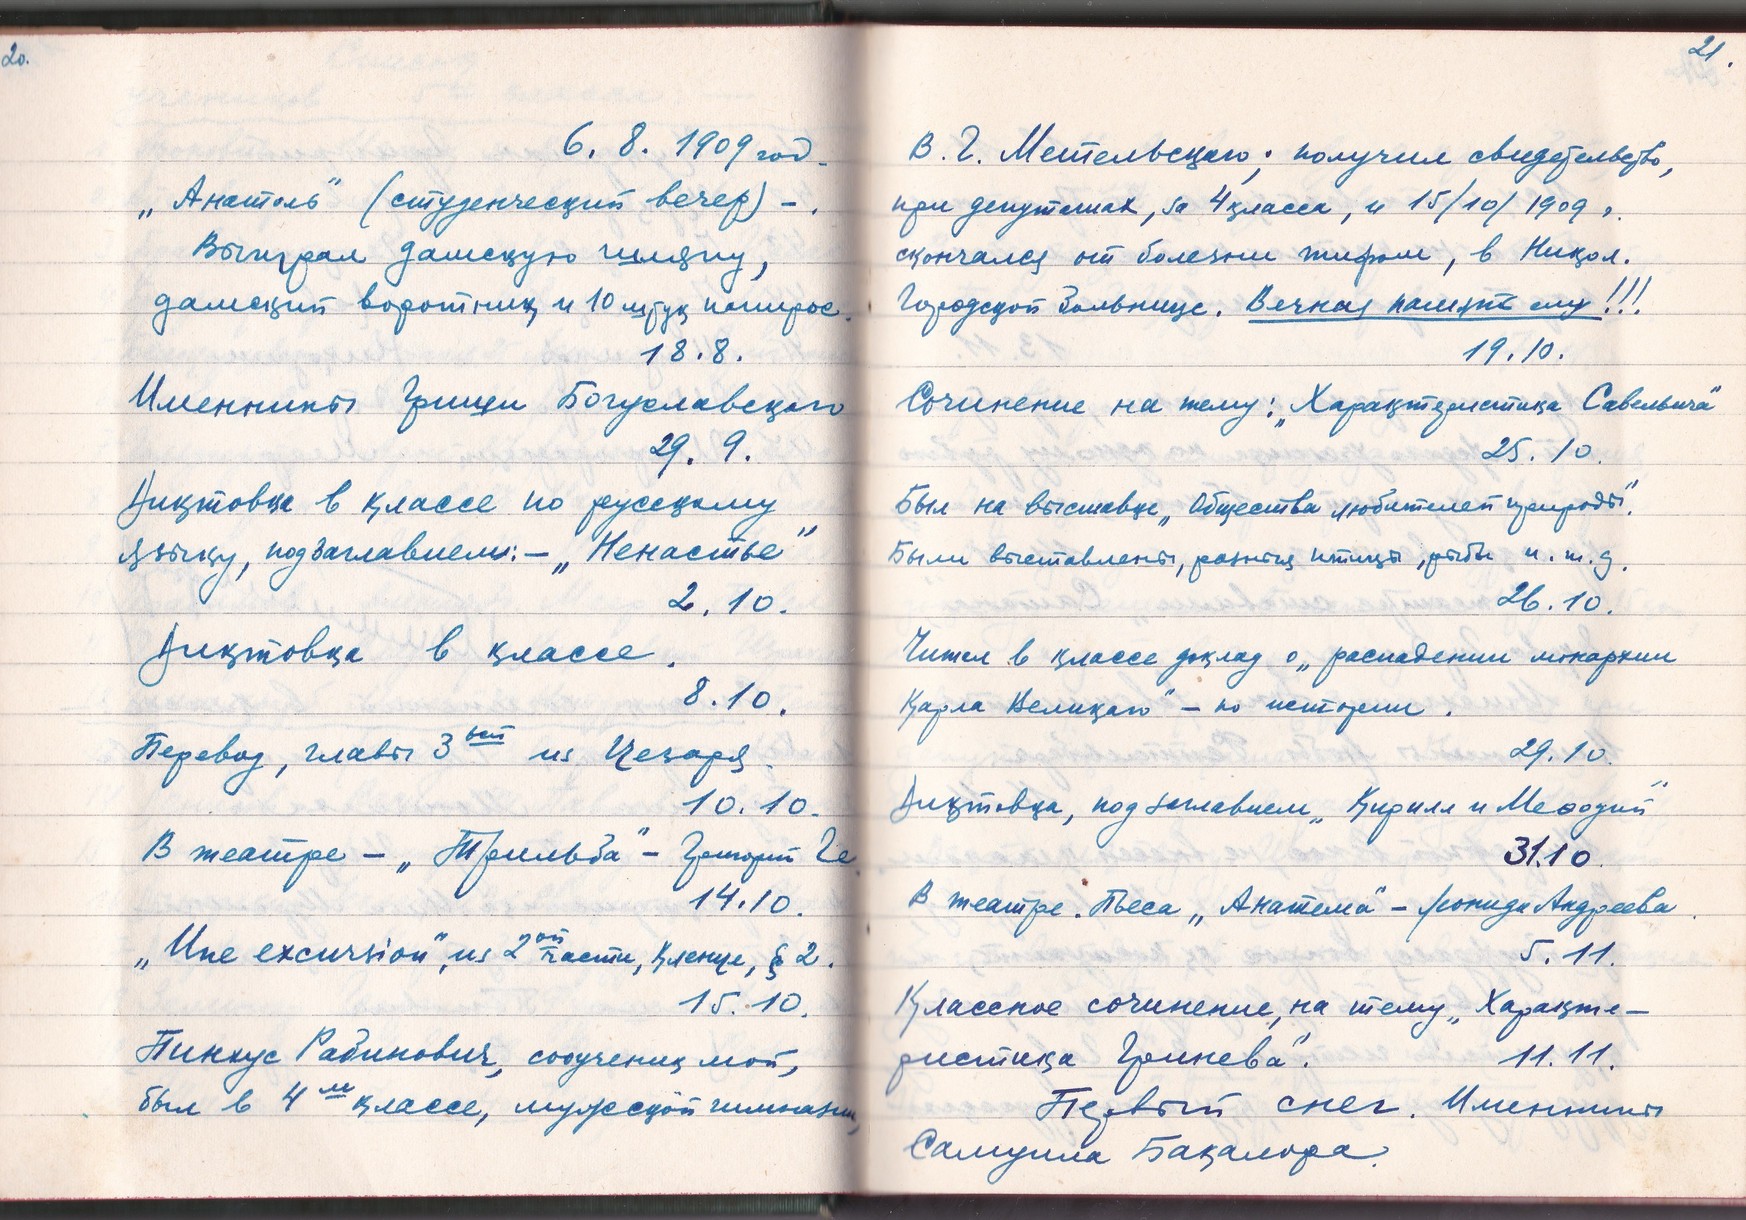 20.
6. 8. 1909 год.
„Анатоль" (студенческий вечер) –.
Выиграл дамскую шляпу,
дамский воротник и 10 штук папирос.
18.8.
Именины Гриши Богуславского
29. 9.
Диктовка в классе по русскому
языку, под заглавием: – „Ненастье"
2. 10.
Диктовка в классе.
8.10.
Перевод, главы 3 ьей из Цезаря.
10.10.
В театре – „Трильба" – Григорий Ге
14.10.
„Une excursion", из 2 ой части, Кленце, § 2.
15.10.
Пинкус Рабинович, соученик мой,
был в 4 м классе, мужской гимназии,
21.
В. Г. Метельского; получил свидетельство,
при депутатах, за 4 класса, и 15/10/1909 г.
скончался от болезни тифом, в Никол.
Городской Больнице. Вечная память ему!!!
19.10.
Сочинение на тему: „Характеристика Савельича"
25.10.
Был на выставке „Общества любителей природы".
Были выставлены, разныя птицы, рыбы и. т. д.
26.10.
Читал в классе доклад о „распадении монархии
Карла Великаго" – по истории.
29.10.
Диктовка, под заглавием „Кирилл и Меѳодий"
31.10.
В театре. Пьеса „Анатема" – Леонида Андреева.
5. 11.
Классное сочинение, на тему „Характе–
ристика Гринева".
11.11.
Первый снег. Именины
Самуила Бакалора.